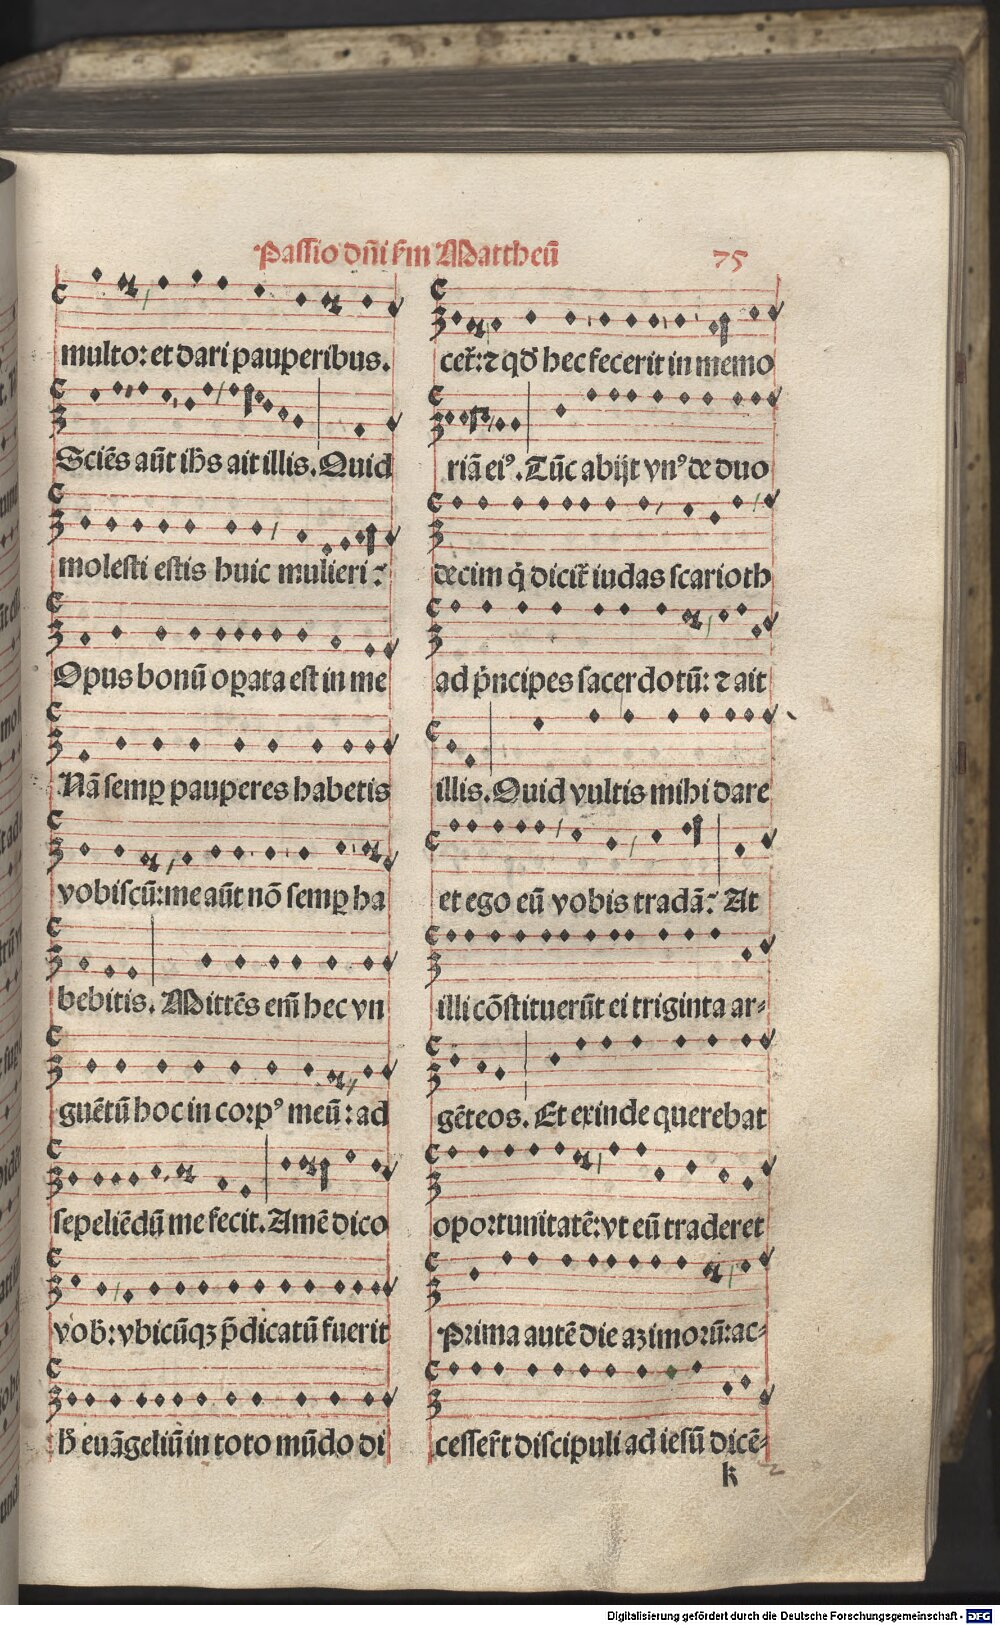 Passio dñi ẜm Mattheũ
75
multo: et dari pauperibus.
Sciẽs aũt ihs ait illis. Quid
molesti estis huic mulieri:
Opus bonũ oꝑata est in me
Nã semꝑ pauperes habetis
vobiscũ: me aũt nõ semꝑ ha
bebitis. Mittẽs em̃ hec vn
guẽtũ hoc in corpꝰ meũ: ad
sepeliẽdũ me fecit. Amẽ dico
vob̃: vbicũqꝫ p̃dicatũ fuerit
h̃ euãgeliũ in toto mũdo di
cet̃: ⁊ qđ hec fecerit in memo
riã eiꝰ. Tũc abijt vnꝰ de duo
decim q̇ dicit̃ iudas scarioth
ad p̃ncipes sacerdotũ: ⁊ ait
illis. Quid vultis mihi dare
et ego eũ vobis tradã: At
illi cõstituerũt ei triginta ar⸗
gẽteos. Et exinde querebat
oportunitatẽ: vt eũ traderet
Prima autẽ die azimorũ: ac⸗
cesser̃t discipuli ad iesũ dicẽ⸗
k
Digitalisierung gefördert durch die Deutsche Forschungsgemeinschaft - DFG